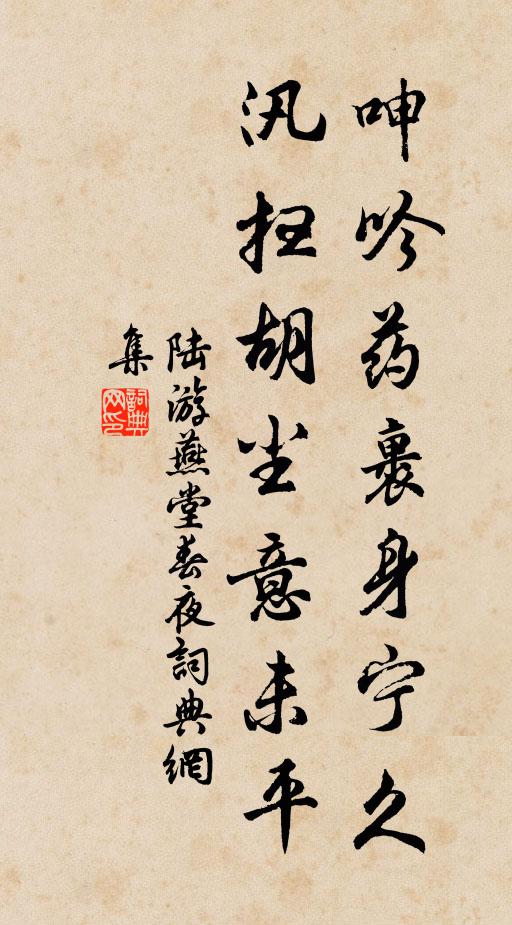 呻吟药裹身宁久
汛扫胡尘意未平
陆游燕堂春夜詞典網
集
詞典网印